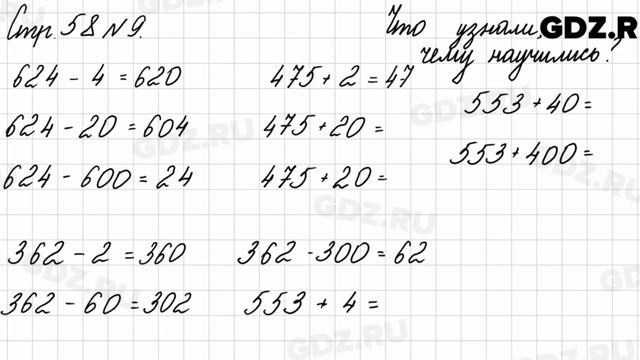 Стр. 58 № 9.
Что узнали,
чему научились?
GDZ.R
624 - 4 = 620
624 - 20 = 604
624 - 600 = 24
362 - 2 = 360
362 - 60 = 302
475 + 2 = 47
475 + 20 =
475 + 20 =
362 - 300 = 62
553 + 4 =
553 + 40 =
553 + 400 =
GDZ.RU
GDZ.RU
GDZ.RU
GDZ.RU
GDZ.RU